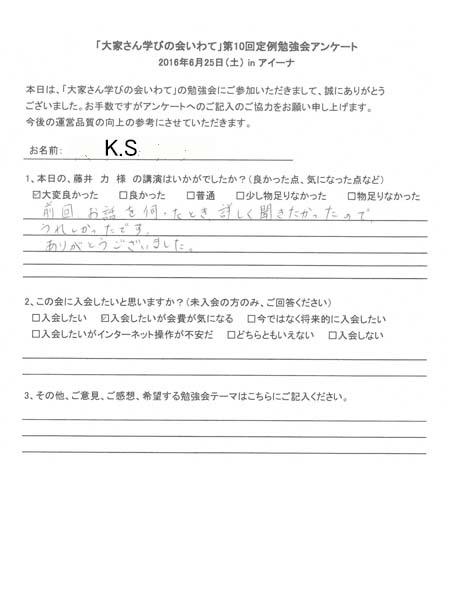 「大家さん学びの会いわて」第10回定例勉強会アンケート
2016年6月25日(土) in アイーナ
本日は、「大家さん学びの会いわて」の勉強会にご参加いただきまして、誠にありがとう
ございました。お手数ですがアンケートへのご記入のご協力をお願い申し上げます。
今後の運営品質の向上の参考にさせていただきます。
お名前: K.S
1、本日の、藤井 力 様 の講演はいかがでしたか?(良かった点、気になった点など)
☑大変良かった □良かった □普通 □少し物足りなかった □物足りなかった
前回 お話を伺ったとき、詳しく聞きたかったので、
うれしかったです。
ありがとうございました。
2、この会に入会したいと思いますか?(未入会の方のみ、ご回答ください)
□入会したい ☑入会したいが会費が気になる □今ではなく将来的に入会したい
□入会したいがインターネット操作が不安だ □どちらともいえない □入会しない
3、その他、ご意見、ご感想、希望する勉強会テーマはこちらにご記入ください。